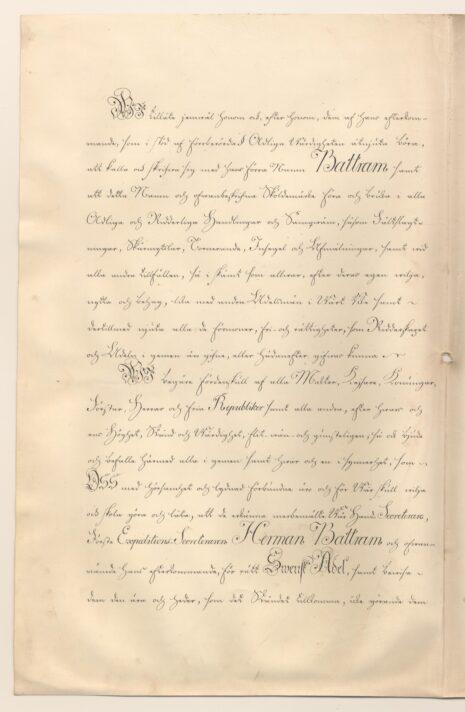 Wi tillåte jemwäl honom och, efter honom, dem af hans efterkom-
mande, som i stöd af förenämnde Adlige Wärdigheten åtnjuta böra,
att kalla och skrifwa sig med hans förra Namn Battram samt
att detta Namn och ofwanbeskrefne Sköldemärke föra och bruka i alla
Adlige och Ridderlige Handlingar och Sammqwäm, såsom Fältslagt-
ningar, Skärmytslar, Tornerande, Insegel och Afmålningar, samt wid
alla andra tillfällen, så i skämt som allwar, efter deras egen wilja,
nytta och behag, lika med andra Adelsmän i Wårt Rike samt
dertill med njuta alla de förmoner, fri- och rättigheter, som Ridderskapet
och Adeln i gemen äro gifne, eller hädanefter gifwas kunna
Wi begäre fördenskull af alla Magter, Kejsare, Konungar,
Furster, Herrar och fria Republiker samt alla andra, efter hwars och
ens Höghet, Stånd och Wärdighet, och gunsteligen, så ock bjude
och befalle härmed alla i gemen samt hwar och en i synnerhet, som
Oss med hörsamhet och lydnad förbundne äro och för Wår skull wilja
och skola göra och låta, att de erkänna merbemälte Wår Hand-Secreterare,
Förste Expeditions-Secreteraren Herman Battram och ofwan-
nämde Hans efterkommande, för rätt Swensk Adel, samt bewisa
dem den ära och heder, som det Ståndet tillkomma, icke görande dem